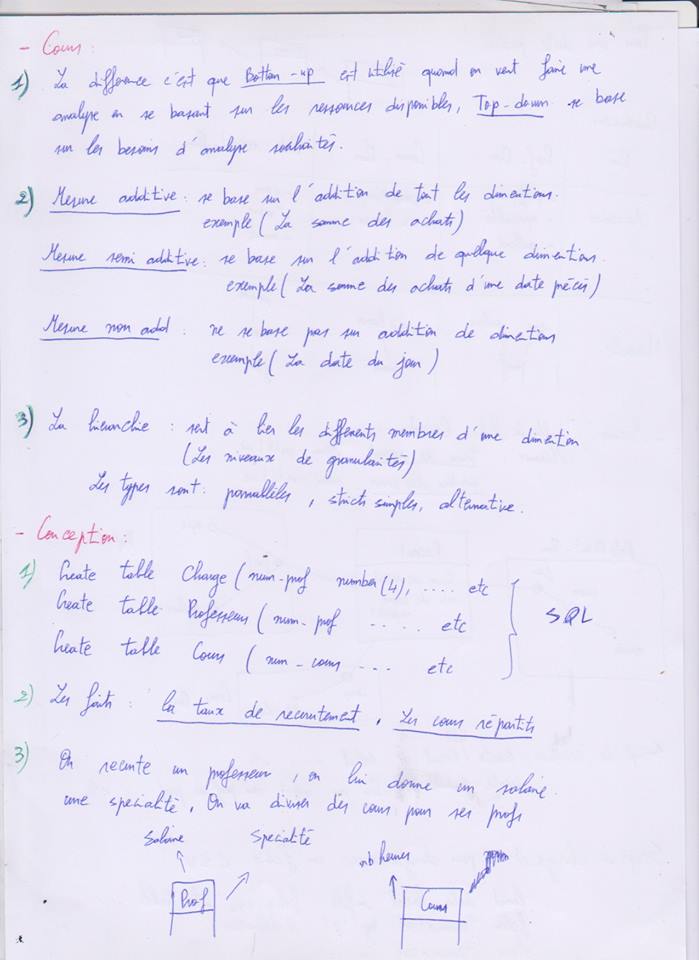 - Cours :
1) La difference c'est que Botton-up est utilisé quand on veut faire une
analyse en se basant sur les ressources disponibles, Top-down se base
sur les besoins d'analyse souhaités.
2) Mesure additive : se base sur l'addition de tout les dimentions.
exemple ( La somme des achats )
Mesure semi additive : se base sur l'addition de quelque dimentions.
exemple ( La somme des achats d'une date précis )
Mesure non add : ne se base pas sur addition de dimentions
exemple ( La date du jour )
3) La hierarchie : sert à lier les differents membres d'une dimention
(Les niveaux de granularités)
Les types sont : paralléles, stricts simples, alternative.
- Conception :
1) Create table Charge ( num-prof number(4), .... etc
Create table Professeurs ( num-prof ..... etc
Create table Cours ( num-cours ... etc
SQL
2) Les faits : la taux de recrutement, Les cours répartits
3) On recrute un professeur, on lui donne un salaire
une specialité, On va diviser des cours pour ses profs
Salaire Specialité nb heures
Prof Cours